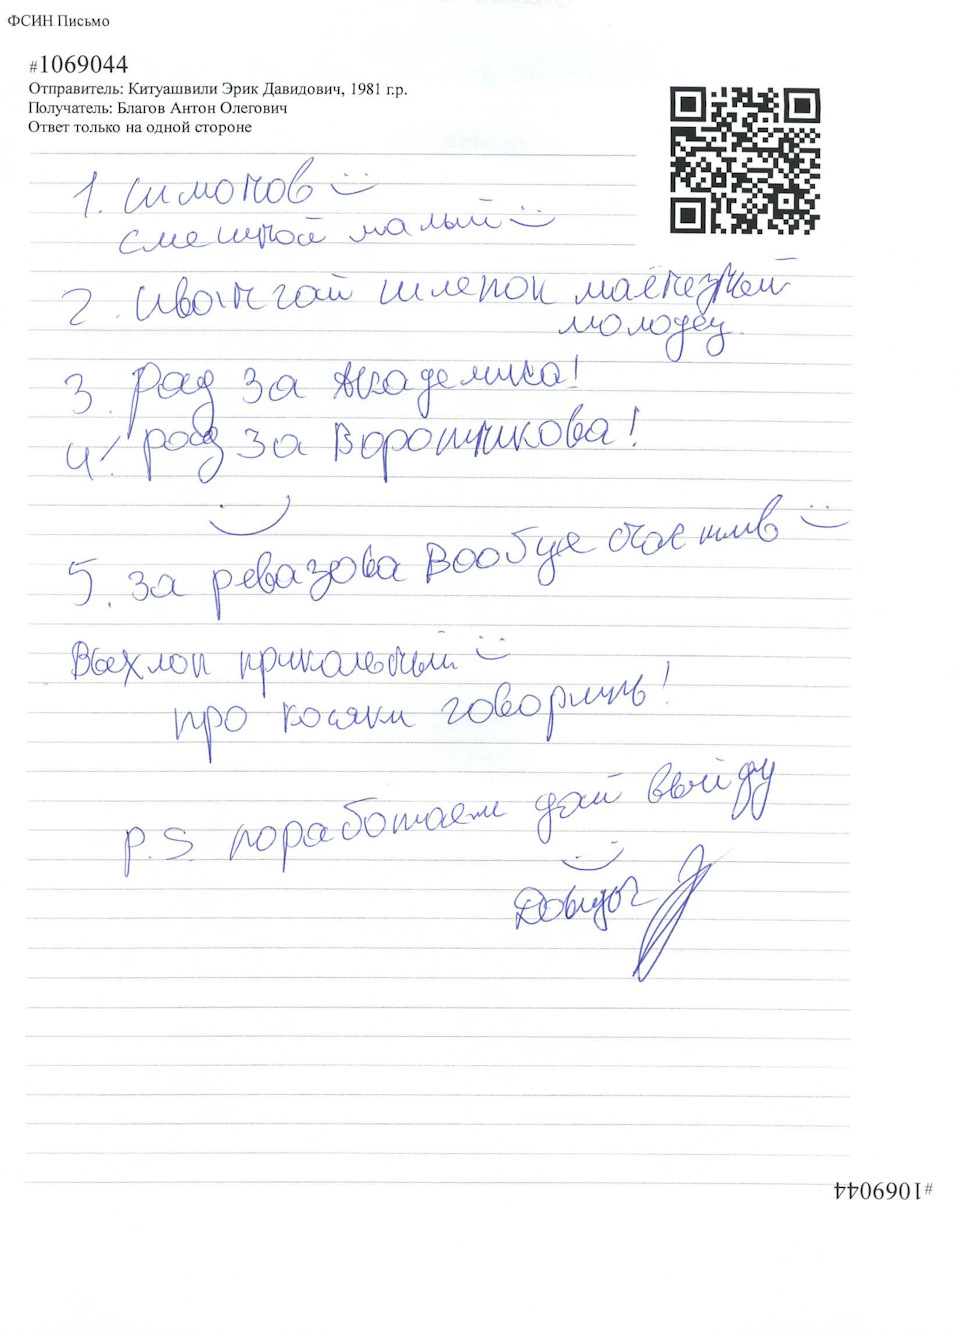 ФСИН Письмо
#1069044
Отправитель: Китуашвили Эрик Давидович, 1981 г.р.
Получатель: Благов Антон Олегович
Ответ только на одной стороне
1. Симонов
смешной малый
2. Ивангай шлепок
молодец
3. Рад за Академика!
4. рад за Воротникова!
5. за ревазова вообще счастлив
Выхлоп прикольный
про косяки говорить!
P.S. поработаем дай выйду
Давидыч
#1069044